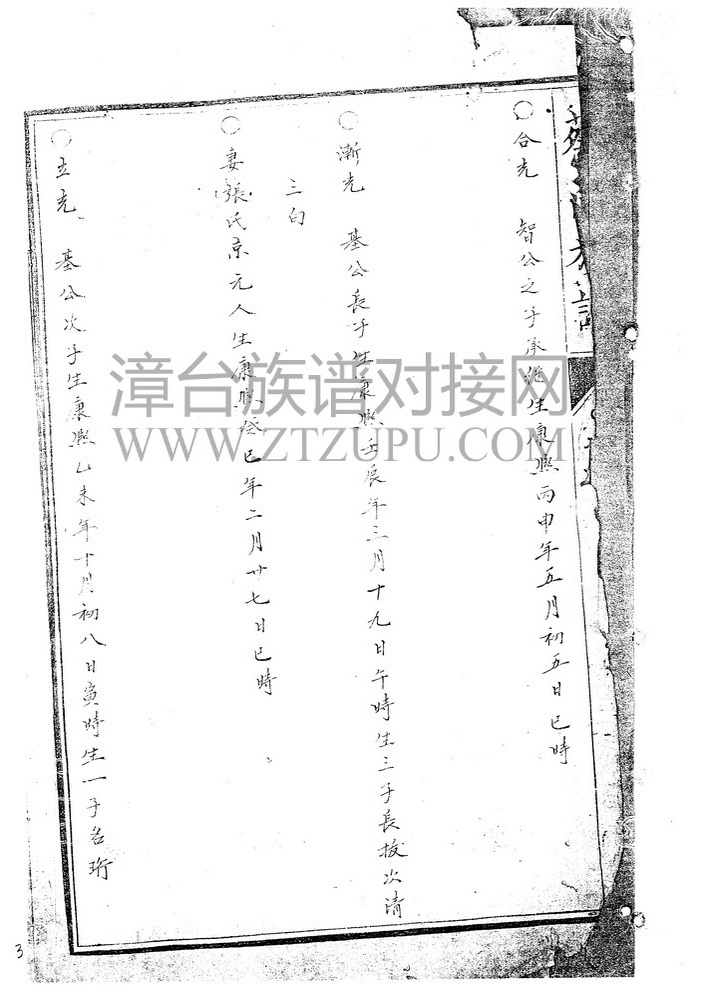 合光 智公之子承継生康熙丙申年五月初五日巳時
漸光 基公長子生康熙壬辰年三月十九日午時生三子長振次清
三白
妻張氏京元人生康熙癸巳年二月廿七日巳時
立光 基公次子生康熙乙未年十月初八日寅時生一子名珩
漳台族谱对接网
WWW.ZTZUPU.COM
3